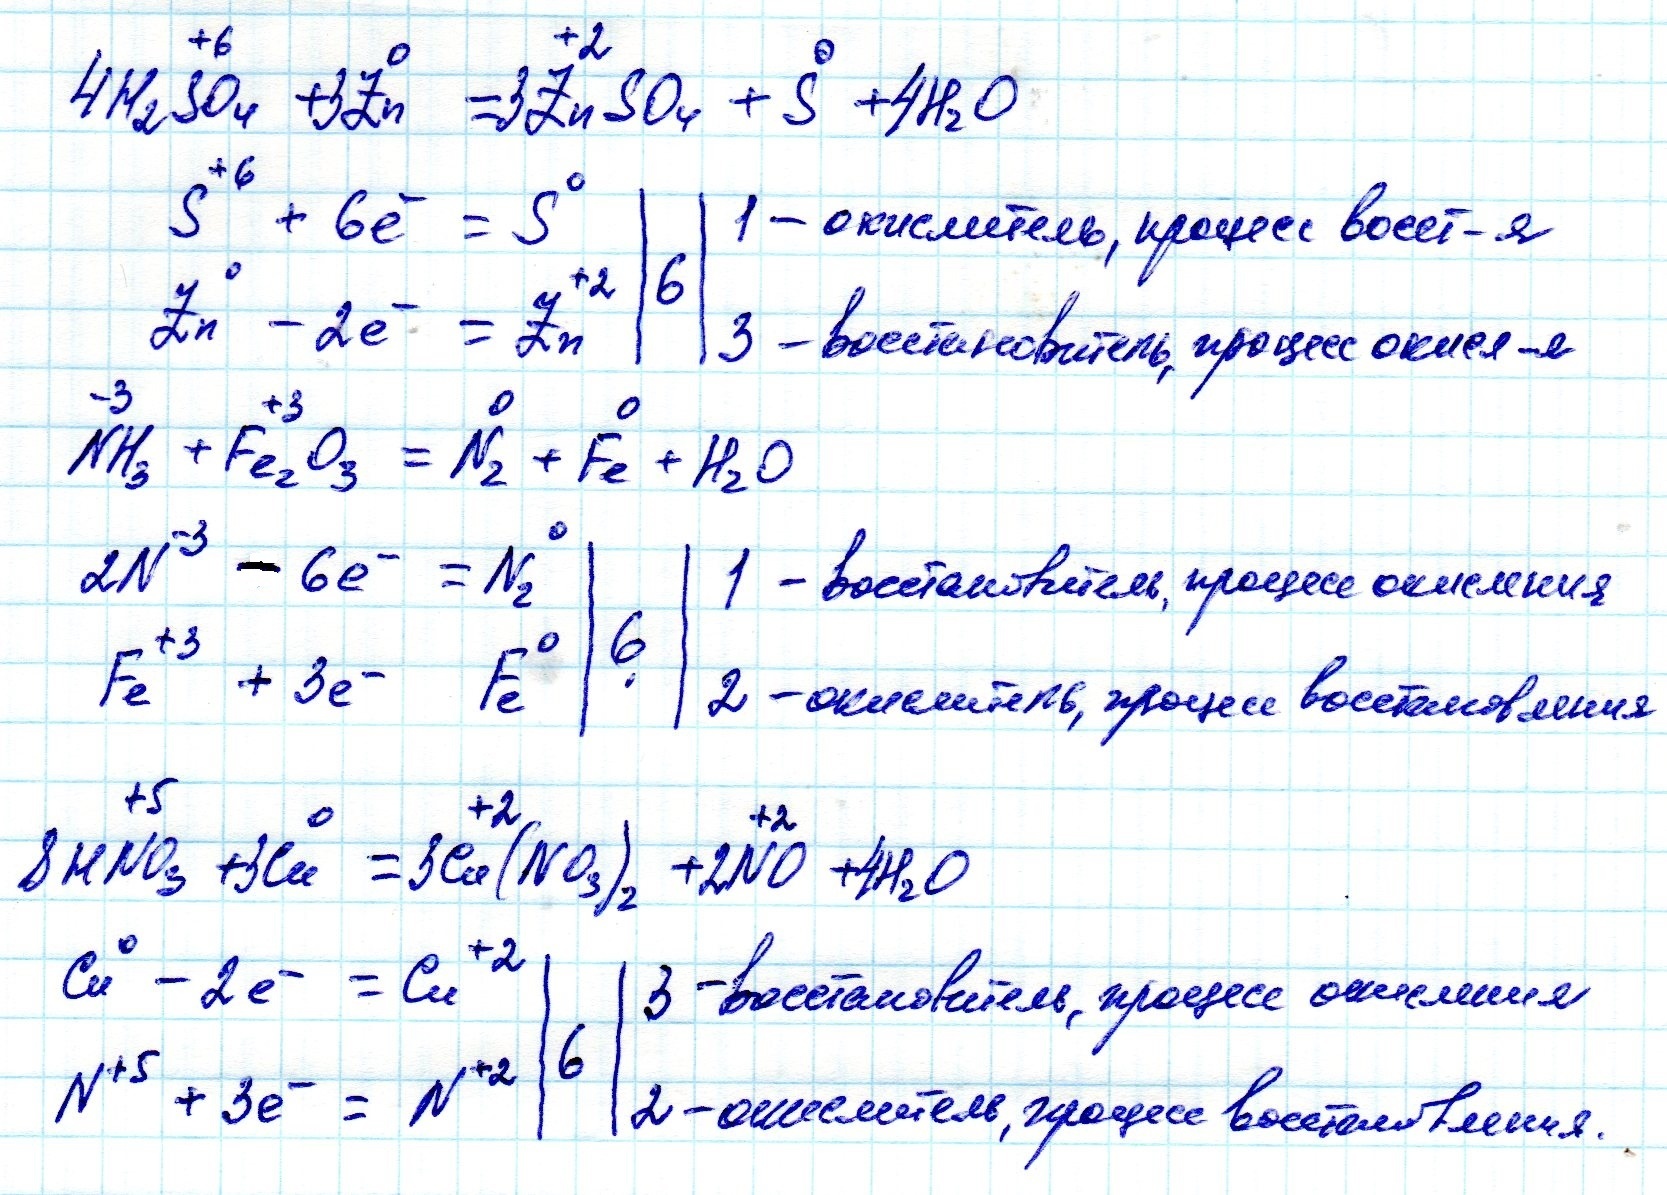 4H₂S⁺⁶O₄ + 3Zn⁰ = 3Zn⁺²SO₄ + S⁰ + 4H₂O
S⁺⁶ + 6e⁻ = S⁰ | 6 | 1 – окислитель, процесс восст-я
Zn⁰ – 2e⁻ = Zn⁺² | 3 – восстановитель, процесс окисл-я
N⁻³H₃ + Fe₂⁺³O₃ = N₂⁰ + Fe⁰ + H₂O
2N⁻³ – 6e⁻ = N₂⁰ | 6 | 1 – восстановитель, процесс окисления
Fe⁺³ + 3e⁻ Fe⁰ | 2 – окислитель, процесс восстановления
8HN⁺⁵O₃ + 3Cu⁰ = 3Cu⁺²(NO₃)₂ + 2N⁺²O + 4H₂O
Cu⁰ – 2e⁻ = Cu⁺² | 6 | 3 – восстановитель, процесс окисления
N⁺⁵ + 3e⁻ = N⁺² | 2 – окислитель, процесс восстановления.